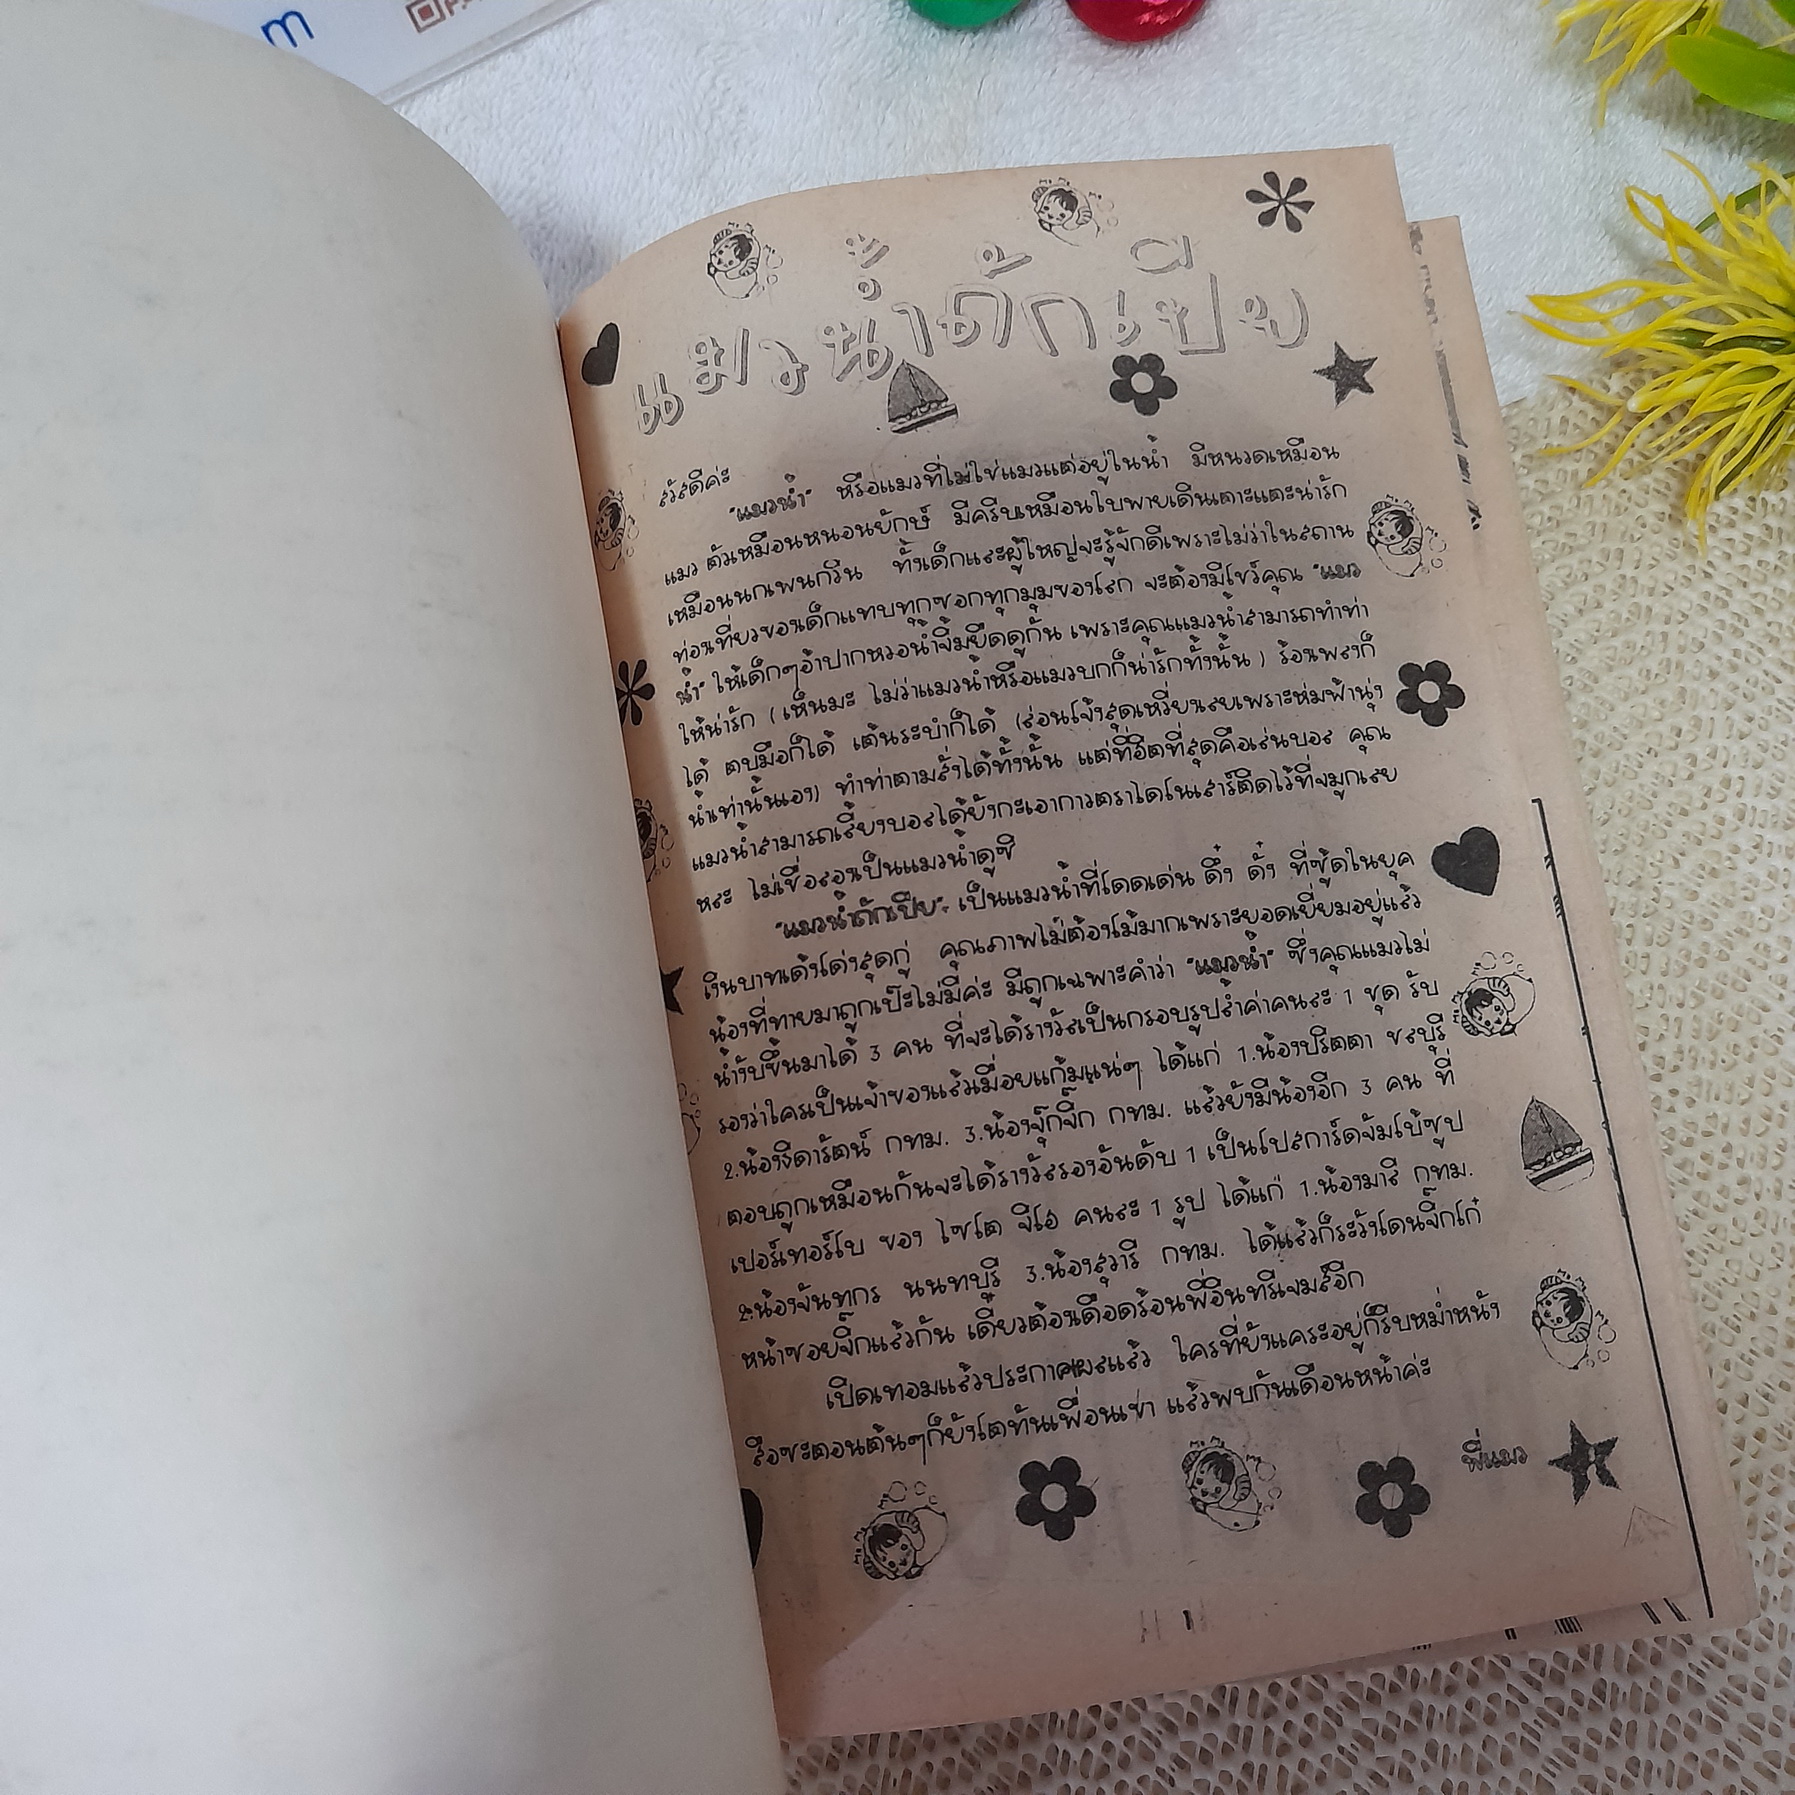 m
แมวน้ำถักเปีย
สวัสดีค่ะ
"แมวน้ำ" หรือแมวที่ไม่ใช่แมวแต่อยู่ในน้ำ มีหนวดเหมือน
แมว ตัวเหมือนหนอนยักษ์ มีครีบเหมือนใบพายเดินเตาะแตะน่ารัก
เหมือนนกเพนกวิน ทั้งเด็กและผู้ใหญ่จะรู้จักดีเพราะไม่ว่าในสถาน
ท่องเที่ยวของเด็กแทบทุกซอกทุกมุมของโลก จะต้องมีโชว์คุณ "แมว
น้ำ" ให้เด็กๆอ้าปากหวอน้ำจิ้มยืดดูกัน เพราะคุณแมวน้ำสามารถทำท่า
ให้น่ารัก (เห็นมะ ไม่ว่าแมวน้ำหรือแมวบกก็น่ารักทั้งนั้น) ร้อนพลงก็
ได้ ตบมือก็ได้ เต้นระบำก็ได้ (ล่อนโจ้งสุดเหวี่ยงเลยเพราะห่มฟ้านุ่ง
น้ำเท่านั้นเอง) ทำท่าตามสั่งได้ทั้งนั้น แต่ที่ฮิตที่สุดคือเล่นบอล คุณ
แมวน้ำสามารถเลี้ยงบอลได้ยังกะเอากาวตราไดโนเสาร์ติดไว้ที่จมูกเลย
หละ ไม่เชื่อลองเป็นแมวน้ำดูซิ
"แมวน้ำถักเปีย" เป็นแมวน้ำที่โดดเด่น ดึ๋ง ดั๋ง ที่ซู้ดในยุค
เงินบาทเด้งโด่งสุดกู่ คุณภาพไม่ต้องโม้มากเพราะยอดเยี่ยมอยู่แล้ว
น้องที่ทายมาถูกเป๊ะไม่มีค่ะ มีถูกเฉพาะคำว่า "แมวน้ำ" ซึ่งคุณแมวไม่
น้ำงับขึ้นมาได้ 3 คน ที่จะได้รางวัลเป็นกรอบรูปล้ำค่าคนละ 1 ชุด รับ
รองว่าใครเป็นเจ้าของแล้วเมื่อยแก้มแน่ๆ ได้แก่ 1.น้องปริตตา ชลบุรี
2.น้องธิดารัตน์ กทม. 3.น้องจุ๊กจิ๊ก กทม. แล้วยังมีน้องอีก 3 คน ที่
ตอบถูกเหมือนกันจะได้รางวัลรองอันดับ 1 เป็นโปสการ์ดจัมโบ้ซูป
เปอร์เทอร์โบ ของ ไซโต จีโฮ คนละ 1 รูป ได้แก่ 1.น้องมาลี กทม.
2.น้องจันทกร นนทบุรี 3.น้องสุวารี กทม. ได้แล้วก็ระวังโดนจิ๊กโก๋
หน้าซอยจิ๊กแล้วกัน เดี๋ยวต้องเดือดร้อนพี่อินทรีเจมส์อีก
เปิดเทอมแล้วประกาศผลแล้ว ใครที่ยังแคระอยู่ก็รีบหม่ำหนัง
สือซะตอนต้นๆก็ยังโตทันเพื่อนเขา แล้วพบกันเดือนหน้าค่ะ
พี่แมว